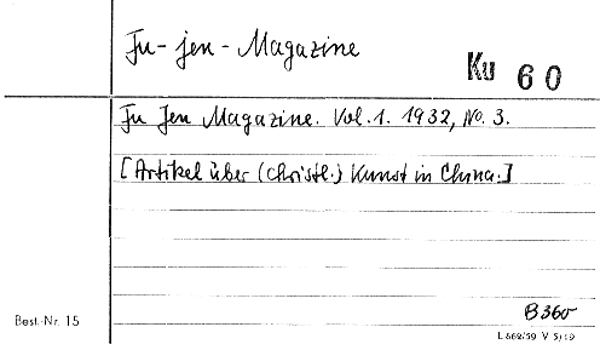 Fu-jen-Magazine
Ku 60
Fu Jen Magazine. Vol. 1. 1932, No. 3.
[Artikel über (christl.) Kunst in China.]
Best.-Nr. 15
B360